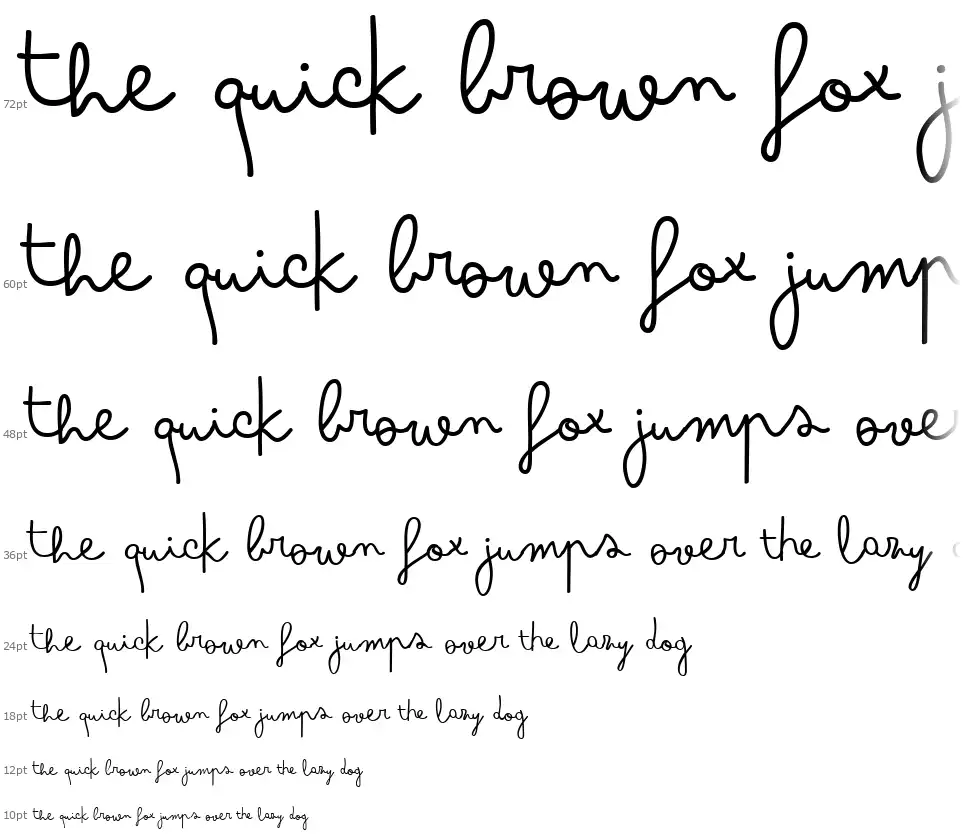 72pt the quick brown fox j
60pt the quick brown fox jump
48pt the quick brown fox jumps over
36pt the quick brown fox jumps over the lazy
24pt the quick brown fox jumps over the lazy dog
18pt the quick brown fox jumps over the lazy dog
12pt the quick brown fox jumps over the lazy dog
10pt the quick brown fox jumps over the lazy dog